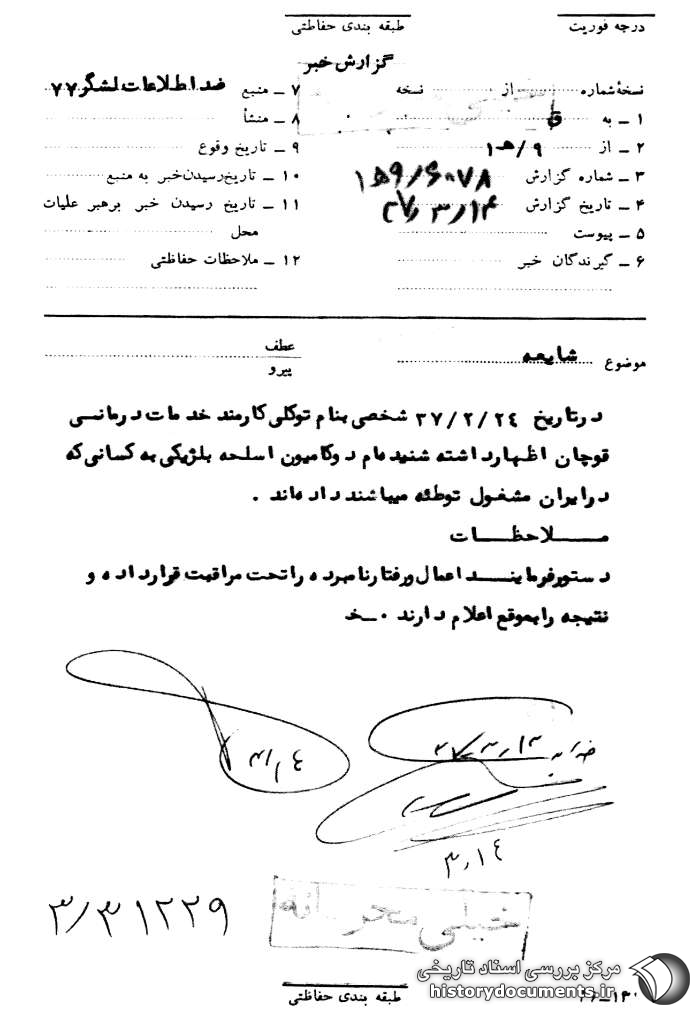 درجه فوریت
طبقه بندی حفاظتی
گزارش خبر
نسخهٔ شماره از نسخه
۱ ــ به ق
۲ ــ از ۹/ه‍۱
۳ ــ شماره گزارش ۹/۶۰۷۸ه‍۱
۴ ــ تاریخ گزارش ۳۷/۳/۱۴
۵ ــ پیوست
۶ ــ گیرندگان خبر
۷ ــ منبع ضد اطلاعات لشگر ۷۷
۸ ــ منشأ
۹ ــ تاریخ وقوع
۱۰ ــ تاریخ رسیدن خبر به منبع
۱۱ ــ تاریخ رسیدن خبر برهبر علیات
محل
۱۲ ــ ملاحظات حفاظتی
موضوع شایعه
عطف
پیرو
در تاریخ ۳۷/۲/۲۴ شخصی بنام توکلی کارمند خدمات درمانی
قوچان اظهار داشته شنیده‌ام دو کامیون اسلحه بلژیکی به کسانی که
در ایران مشغول توطئه میباشند داده‌اند .
مــلاحظــات
دستور فرمایند اعمال و رفتار نامبرده را تحت مراقبت قرار داده و
نتیجه را بموقع اعلام دارند ۰ـخد
۳۷/۳/۱۳
۳/۱۴
۳/۳۱۲۲۹
خیلی محرمانه
طبقه بندی حفاظتی
مرکز بررسی اسناد تاریخی
historydocuments.ir